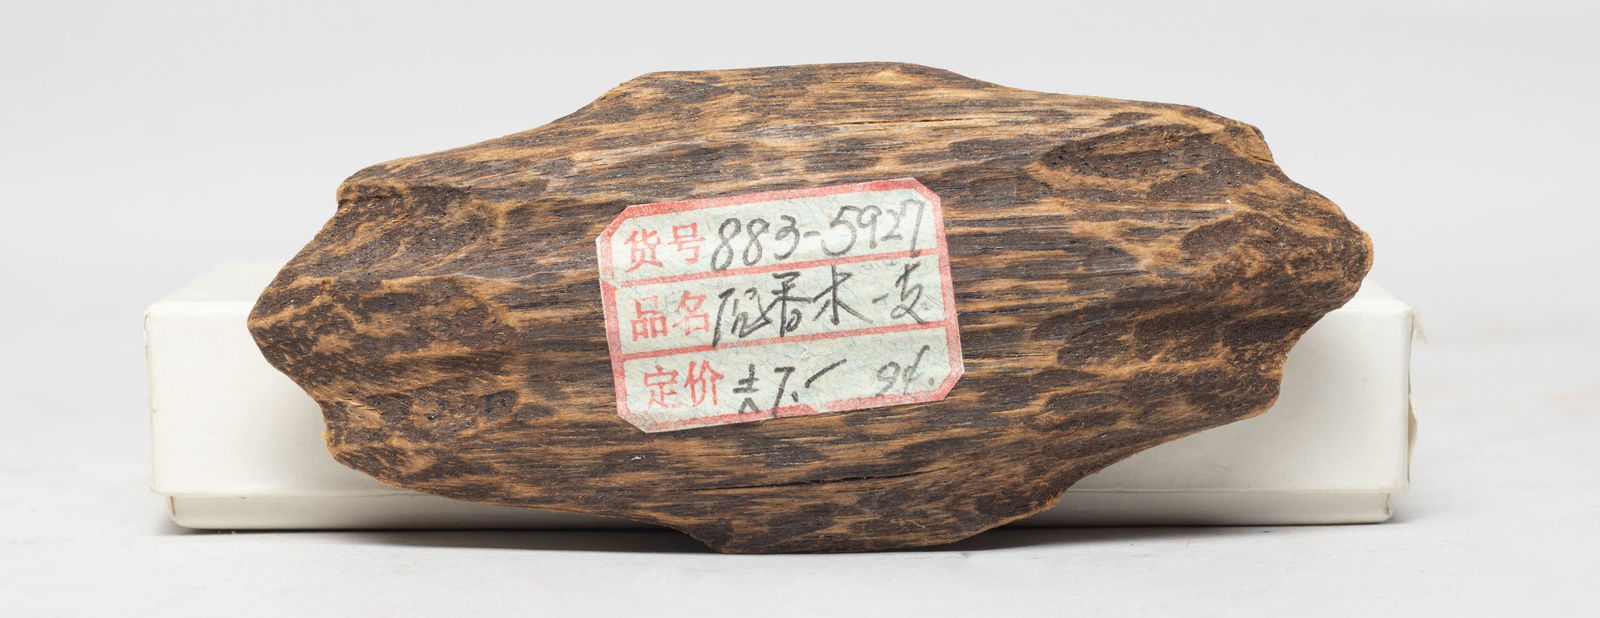 货号 883-5927
品名 沉香木一支
定价